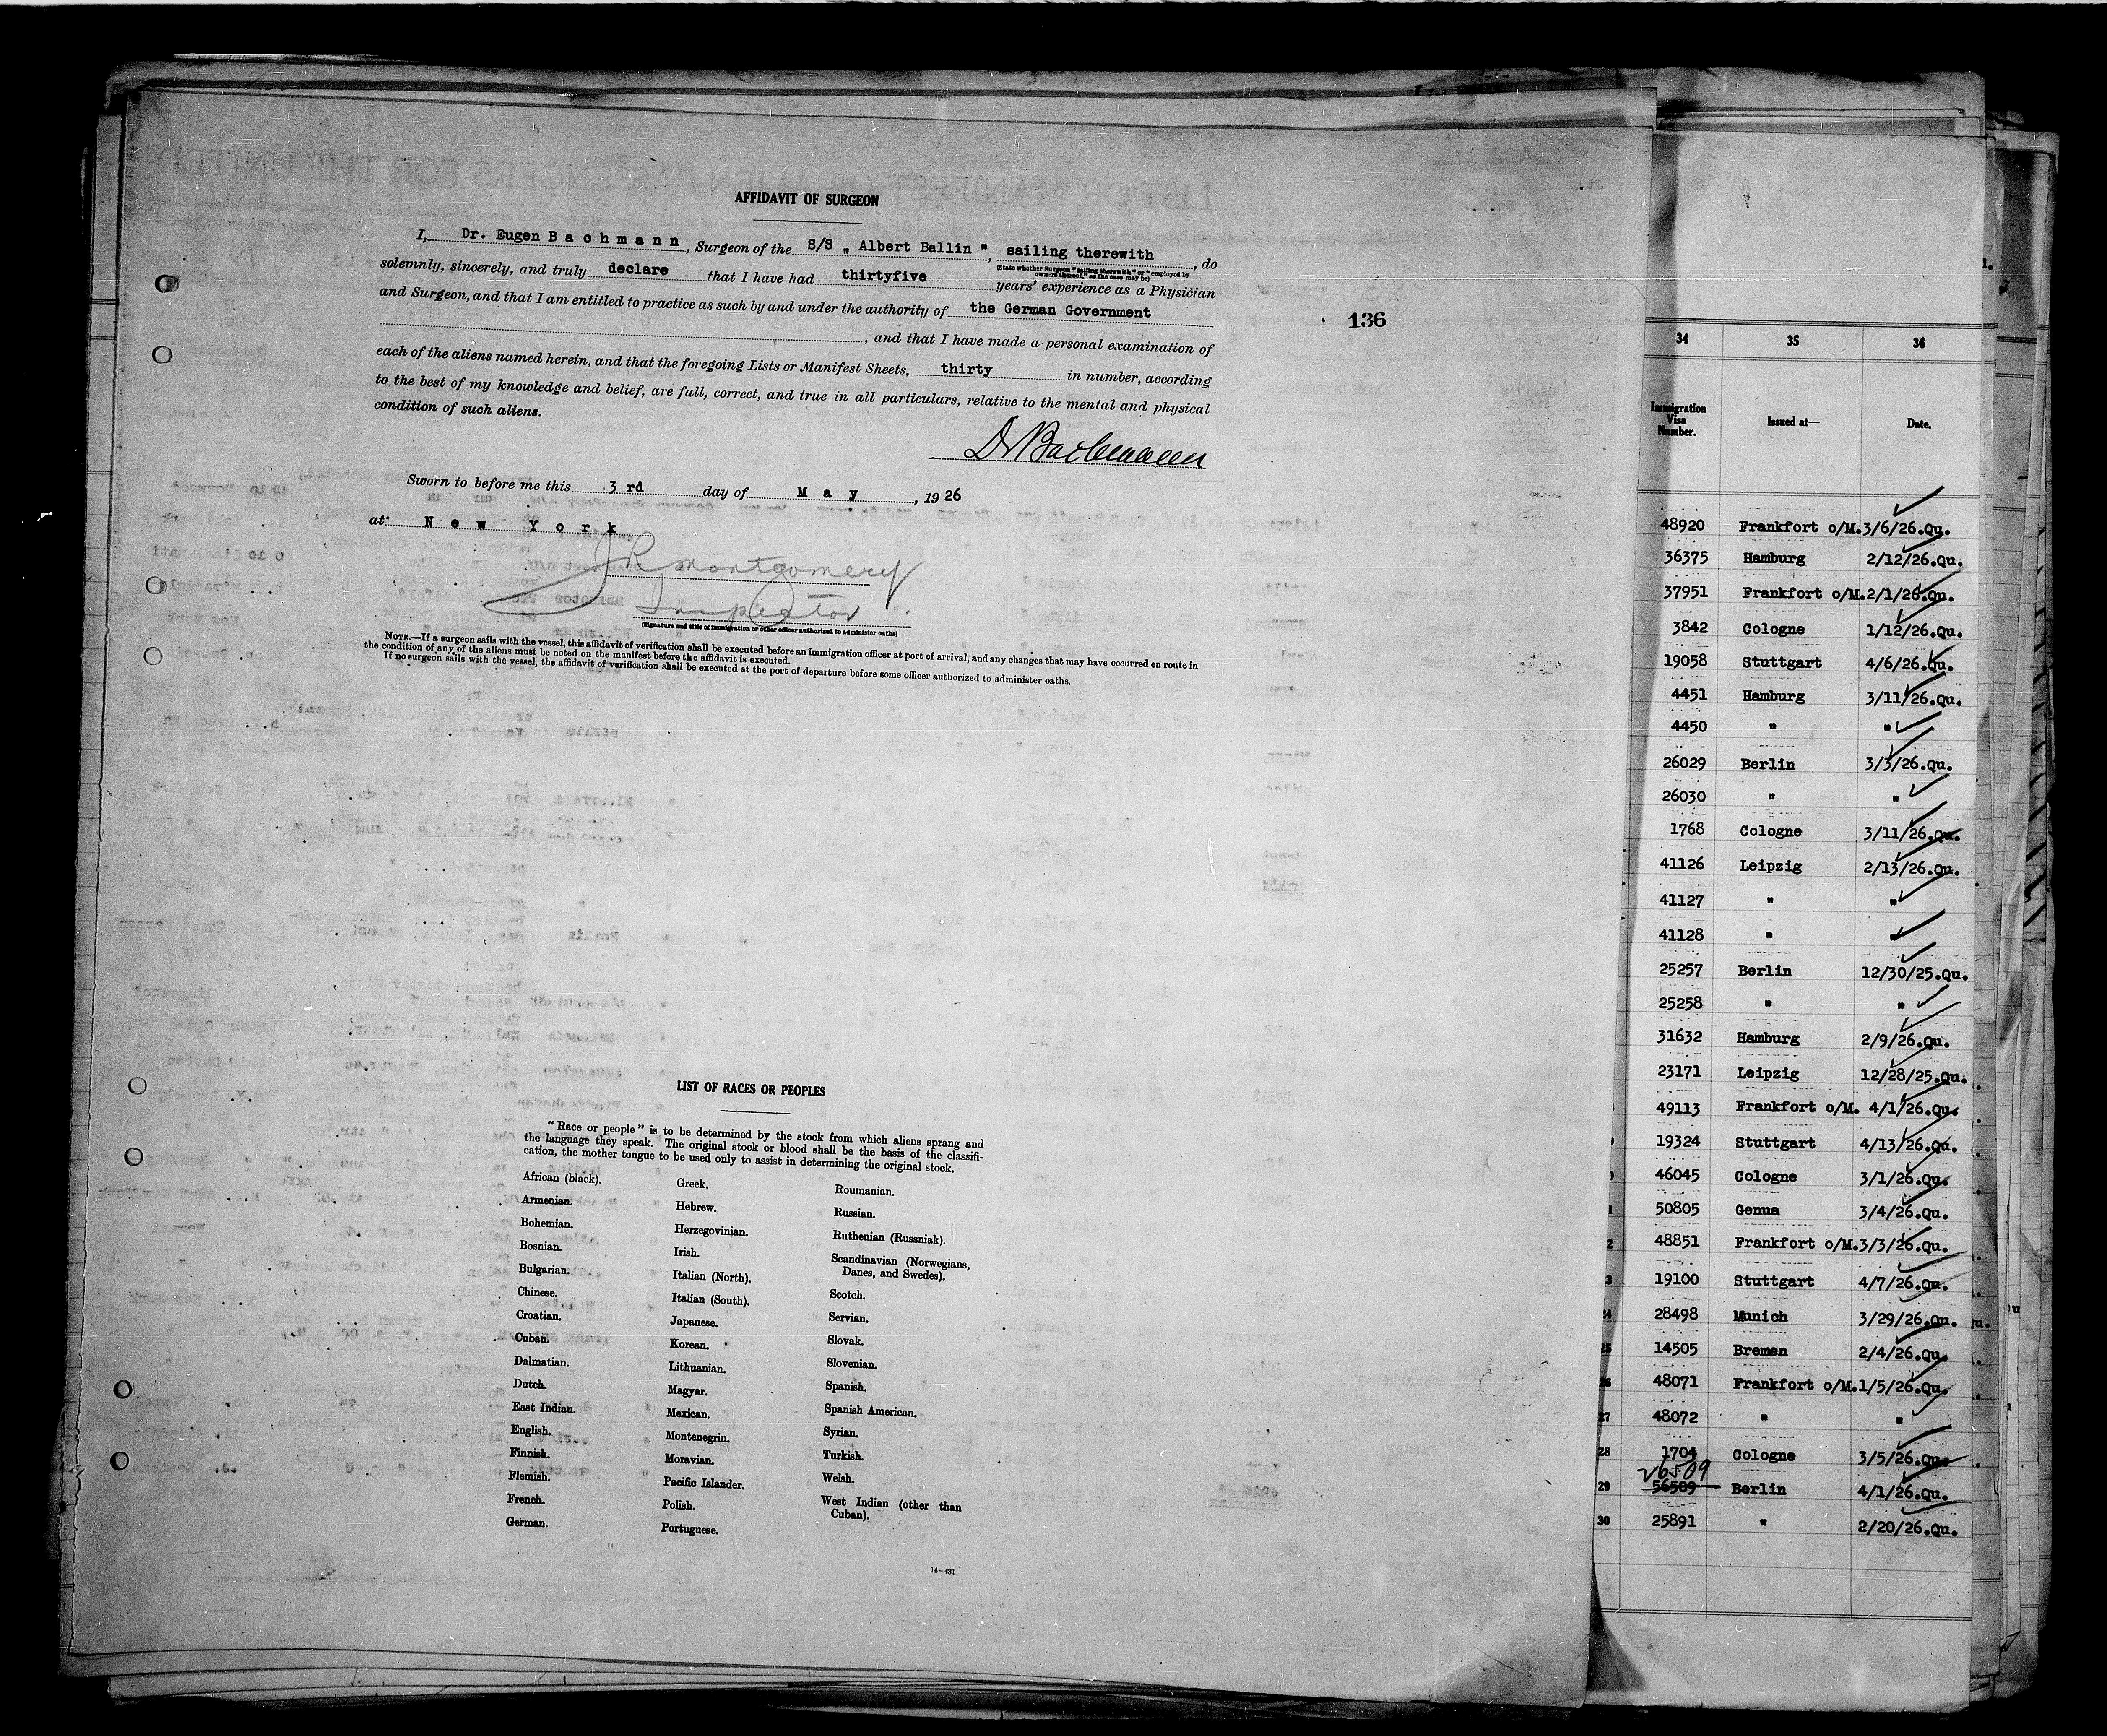 AFFIDAVIT OF SURGEON
I, Dr. Eugen Bachmann, Surgeon of the S/S „ Albert Ballin ", sailing therewith, do
(State whether Surgeon "sailing therewith" or "employed by owners thereof," as the case may be)
solemnly, sincerely, and truly declare that I have had thirtyfive years' experience as a Physician
and Surgeon, and that I am entitled to practice as such by and under the authority of the German Government
, and that I have made a personal examination of
each of the aliens named herein, and that the foregoing Lists or Manifest Sheets, thirty in number, according
to the best of my knowledge and belief, are full, correct, and true in all particulars, relative to the mental and physical
condition of such aliens.
Dr Bachmann
Sworn to before me this 3 rd day of May, 1926
at New York
J R Montgomery
Inspector
(Signature and title of immigration or other officer authorized to administer oaths)
NOTE.—If a surgeon sails with the vessel, this affidavit of verification shall be executed before an immigration officer at port of arrival, and any changes that may have occurred en route in
the condition of any of the aliens must be noted on the manifest before the affidavit is executed.
If no surgeon sails with the vessel, the affidavit of verification shall be executed at the port of departure before some officer authorized to administer oaths.
136
LIST OF RACES OR PEOPLES
"Race or people" is to be determined by the stock from which aliens sprang and
the language they speak. The original stock or blood shall be the basis of the classifi-
cation, the mother tongue to be used only to assist in determining the original stock.
African (black).
Armenian.
Bohemian.
Bosnian.
Bulgarian.
Chinese.
Croatian.
Cuban.
Dalmatian.
Dutch.
East Indian.
English.
Finnish.
Flemish.
French.
German.
Greek.
Hebrew.
Herzegovinian.
Irish.
Italian (North).
Italian (South).
Japanese.
Korean.
Lithuanian.
Magyar.
Mexican.
Montenegrin.
Moravian.
Pacific Islander.
Polish.
Portuguese.
Roumanian.
Russian.
Ruthenian (Russniak).
Scandinavian (Norwegians,
Danes, and Swedes).
Scotch.
Servian.
Slovak.
Slovenian.
Spanish.
Spanish American.
Syrian.
Turkish.
Welsh.
West Indian (other than
Cuban).
14—431
34 35 36
Immigration Visa Number. Issued at— Date.
48920 Frankfort o/M. 3/6/26.Qu.
36375 Hamburg 2/12/26.Qu.
37951 Frankfort o/M. 2/1/26.Qu.
3842 Cologne 1/12/26.Qu.
19058 Stuttgart 4/6/26.Qu.
4451 Hamburg 3/11/26.Qu.
4450 " "
26029 Berlin 3/3/26.Qu.
26030 " "
1768 Cologne 3/11/26.Qu.
41126 Leipzig 2/13/26.Qu.
41127 " "
41128 " "
25257 Berlin 12/30/25.Qu.
25258 " "
31632 Hamburg 2/9/26.Qu.
23171 Leipzig 12/28/25.Qu.
49113 Frankfort o/M. 4/1/26.Qu.
19324 Stuttgart 4/13/26.Qu.
46045 Cologne 3/1/26.Qu.
50805 Genua 3/4/26.Qu.
48851 Frankfort o/M. 3/3/26.Qu.
19100 Stuttgart 4/7/26.Qu.
28498 Munich 3/29/26.Qu.
25 14505 Bremen 2/4/26.Qu.
26 48071 Frankfort o/M. 1/5/26.Qu.
27 48072 " "
28 1704 Cologne 3/5/26.Qu.
26509
29 56509 Berlin 4/1/26.Qu.
30 25891 " 2/20/26.Qu.